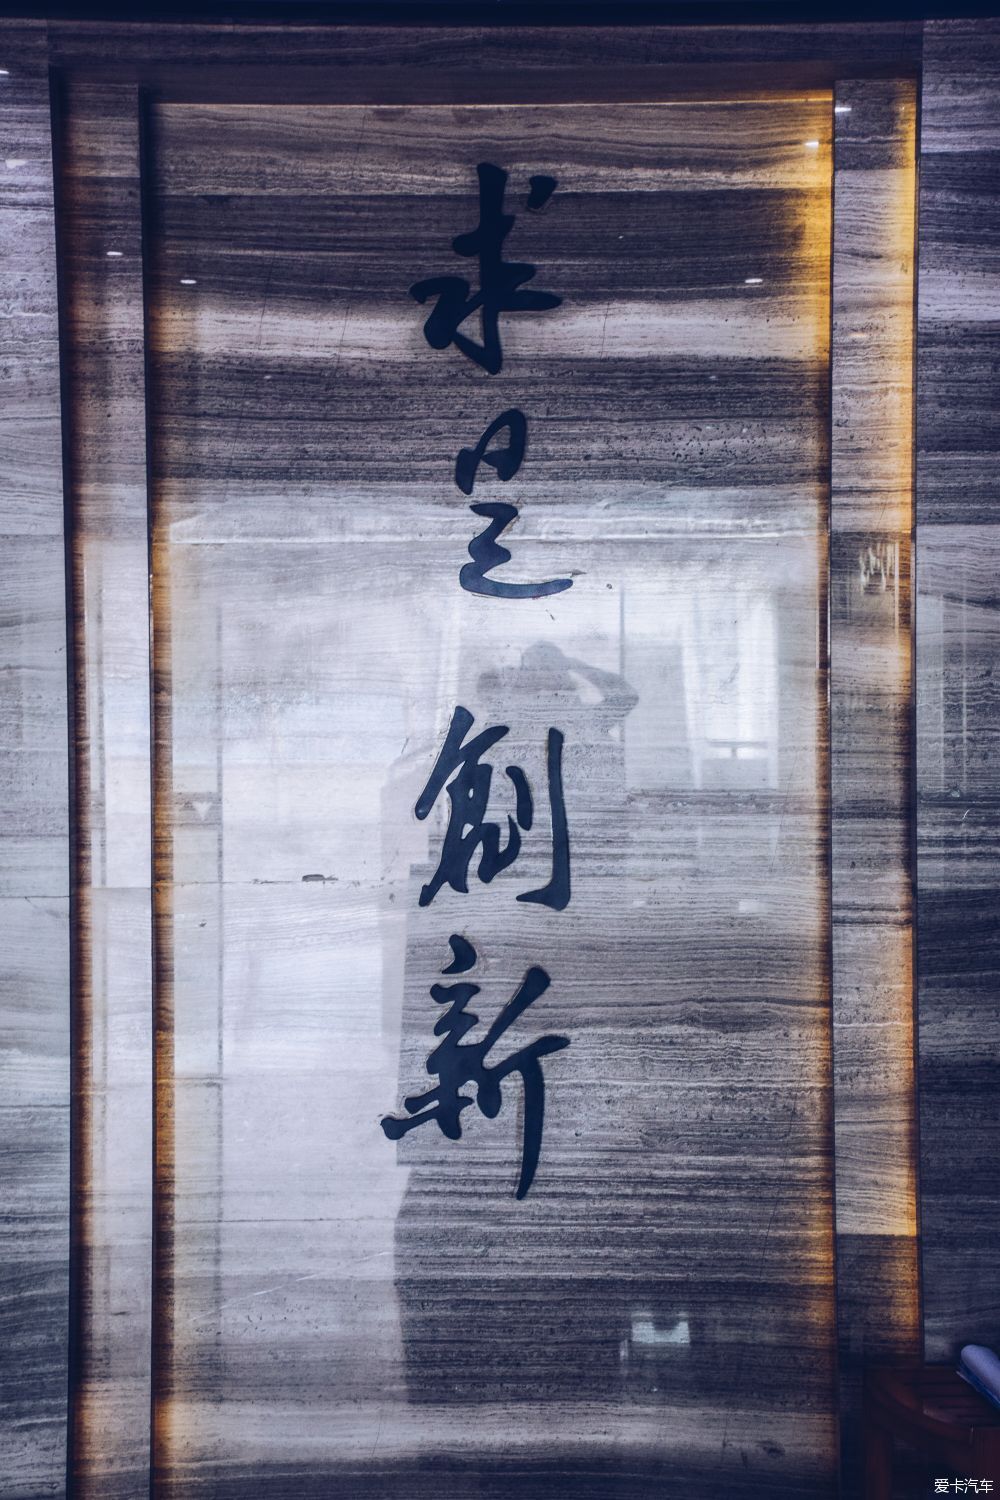 求是創新
爱卡汽车